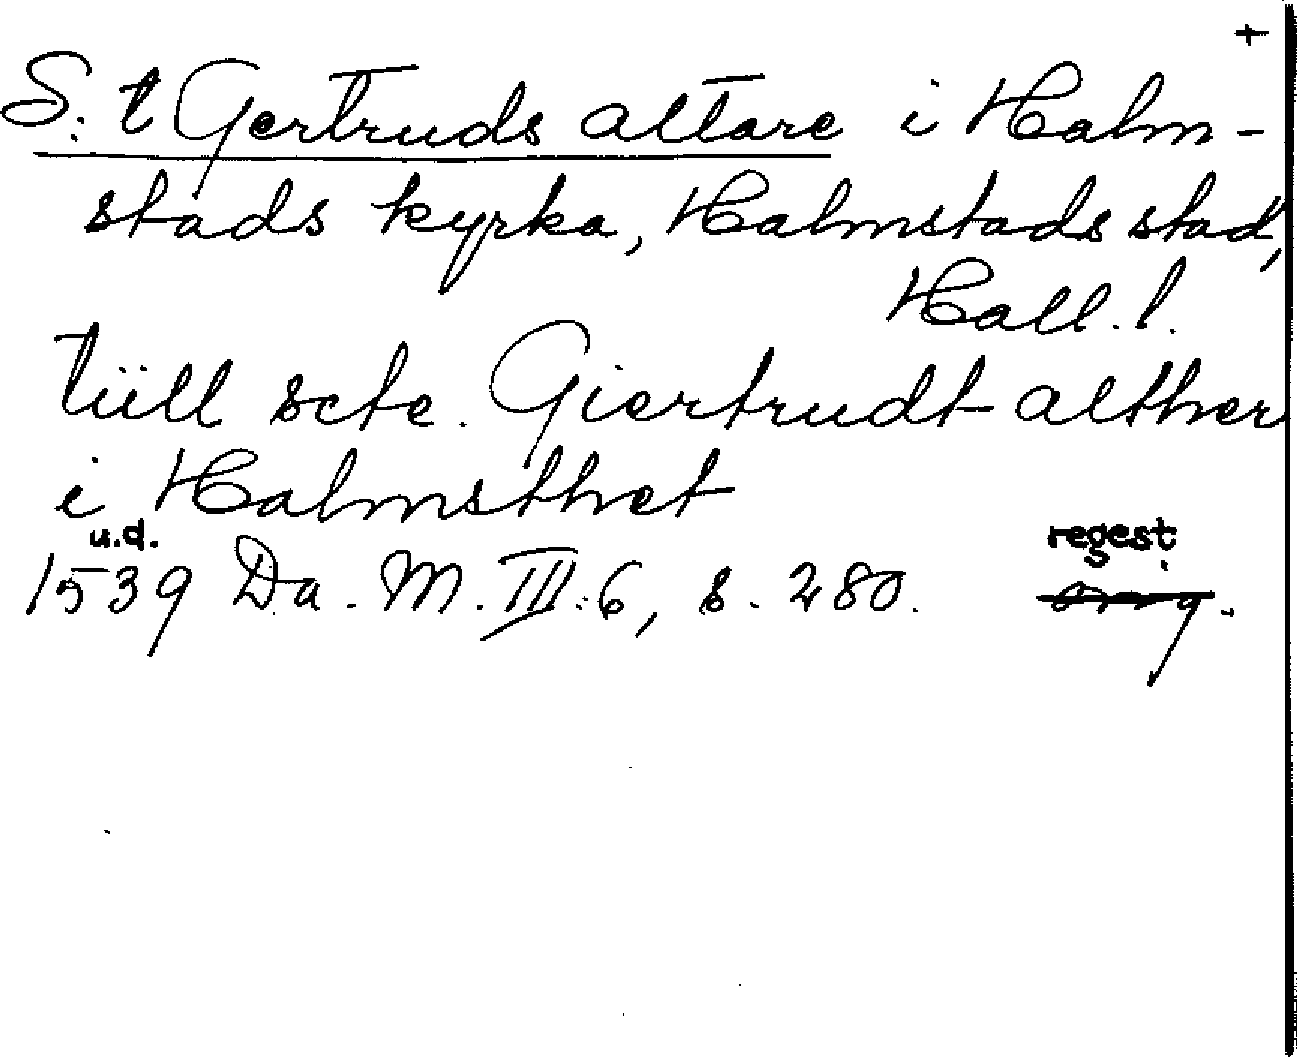 +
S:t Gertruds altare i Halm-
stads kyrka, Halmstads stad,
Hall. l.
tüll scte. Giertrudt alther
i Halmsthet
u.d. regest.
1539 Da. M. III:6, s. 280.